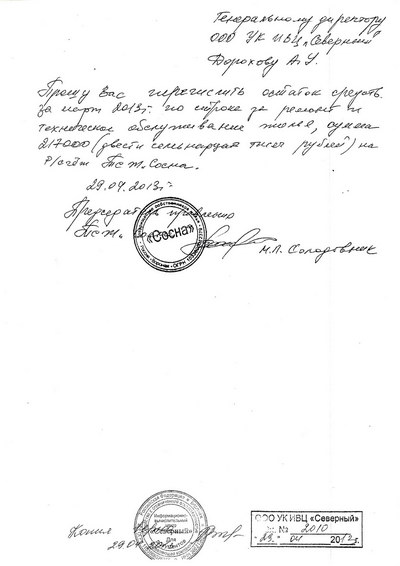 Генеральному директору
ООО УК ИВЦ „Северный"
Дорохову А.У.
Прошу Вас перечислить остаток средств
за март 2013г. по строке за ремонт и
техническое обслуживание жилья, сумма
217000 (двести семнадцать тысяч рублей) на
Р/счёт ТСЖ. Сосна.
29.04.2013г.
Председатель правления
ТСЖ.
«Сосна»
М.П. Солодовник
Информационно-
вычислительный
центр
«Северный»
Для
документов
Копия
29.04
ООО УК ИВЦ «Северный»
№ 2010
29 04 201